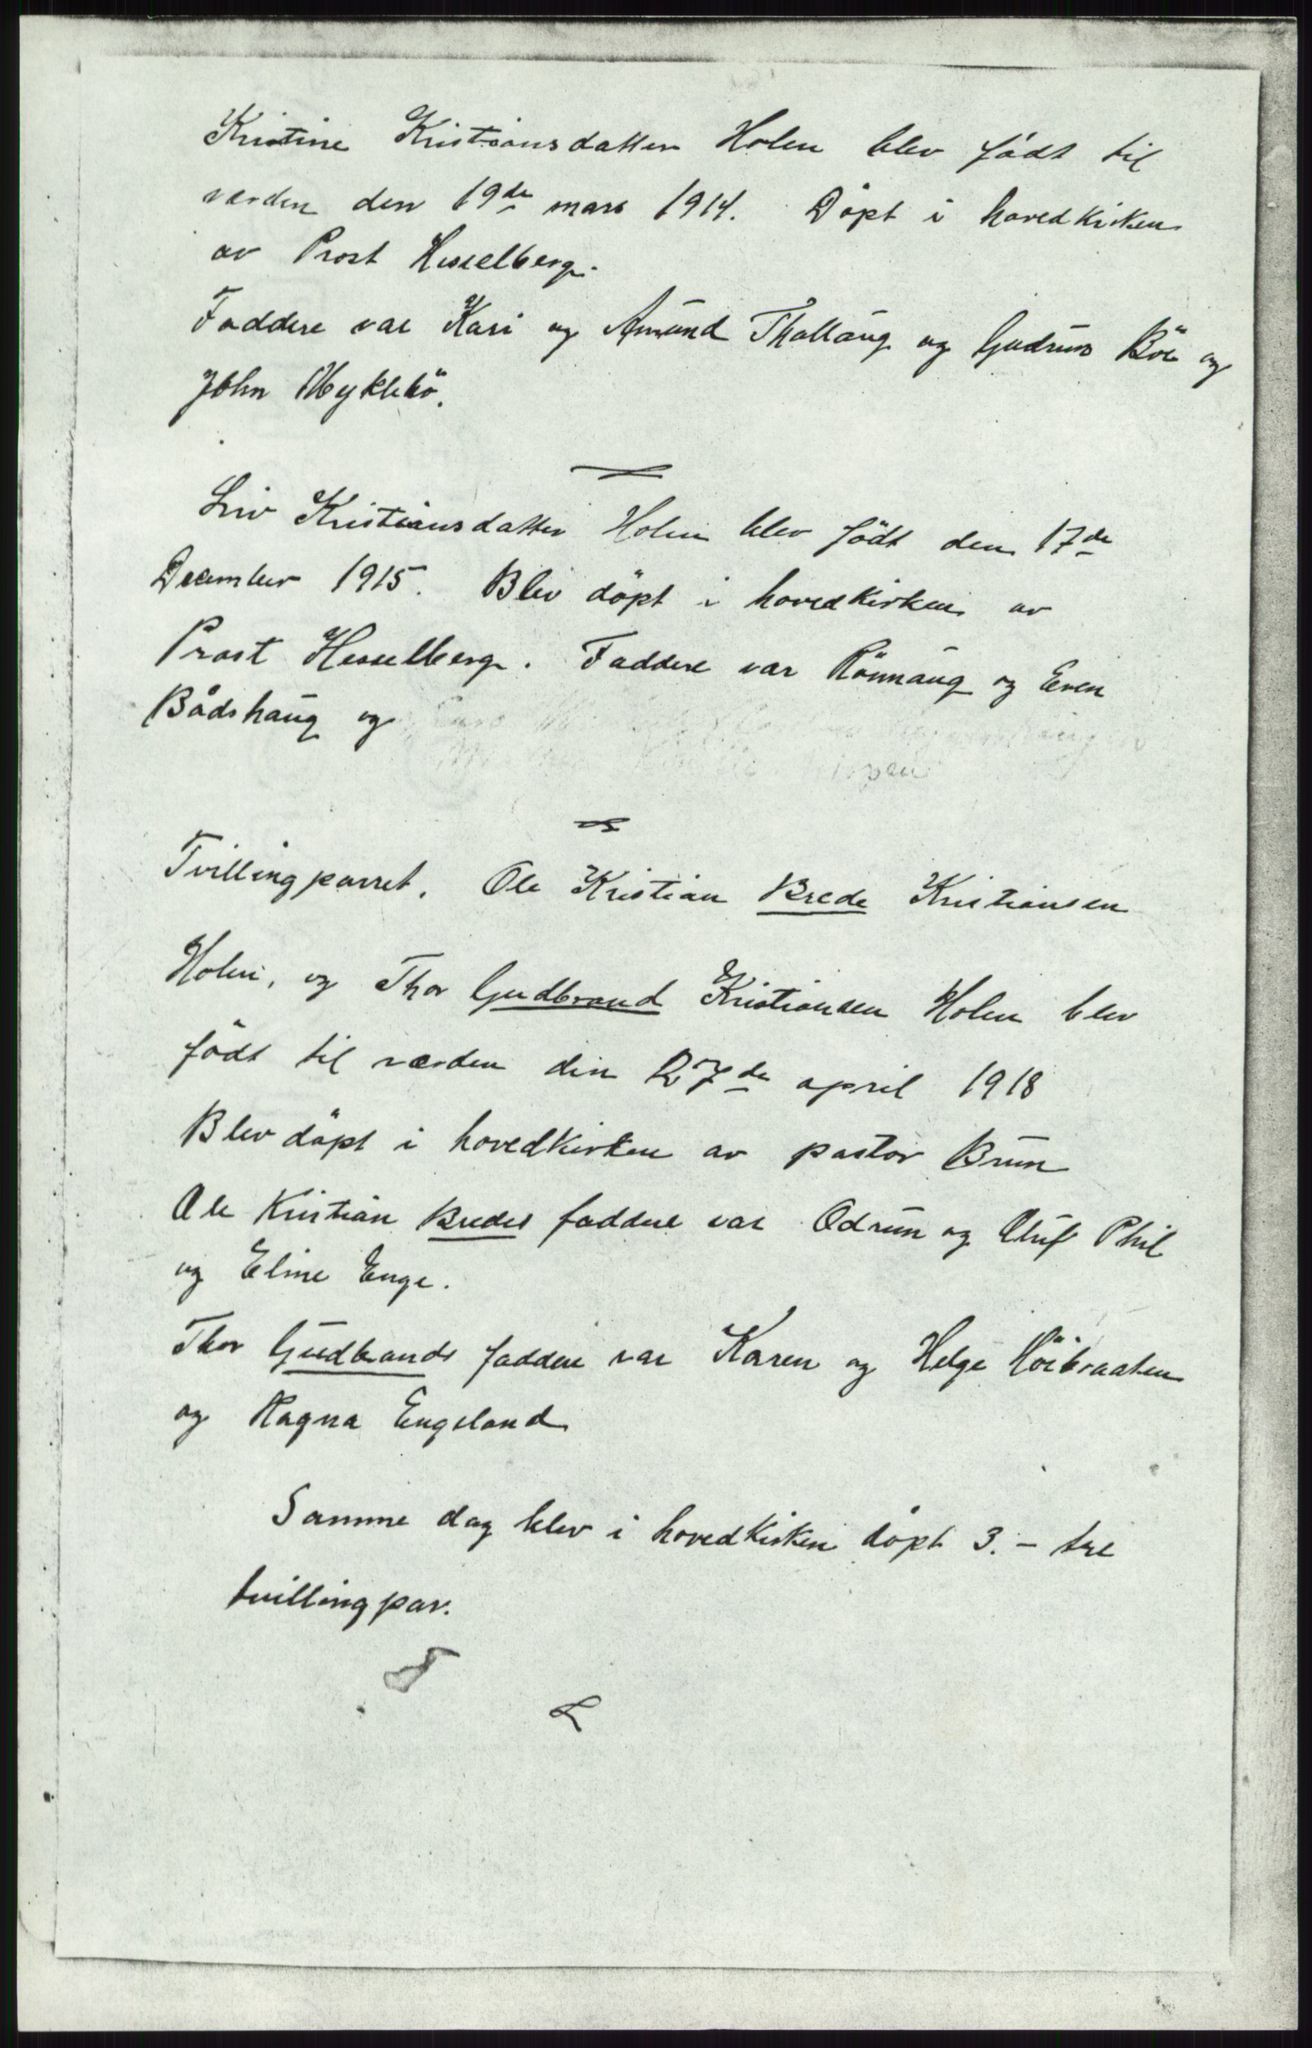 Kristine Kristiansdatter Holen blev födt til
verden den 19de mars 1914. Döpt i hovedkirken
av Prost Hesselberg.
Faddere var Kari og Amund Thallaug og Gudrun Böe og
John Myklebö.
Liv Kristiansdatter Holen blev födt den 17de
December 1915. Blev döpt i hovedkirken av
Prost Hesselberg. Faddere var Rönnaug og Even
Bådshaug og
Tvillingparret. Ole Kristian Brede Kristiansen
Holen, og Thor Gudbrand Kristiansen Holen blev
födt til verden den 27de april 1918
Blev döpt i hovedkirken av pastor Brun
Ole Kristian Bredes faddere var Odrun og Oluf Phil
og Eline Enge.
Thor Gudbrands faddere var Karen og Helge Höibraaten
og Ragna Engeland
Samme dag blev i hovedkirken döpt 3. - tre
tvillingpar.